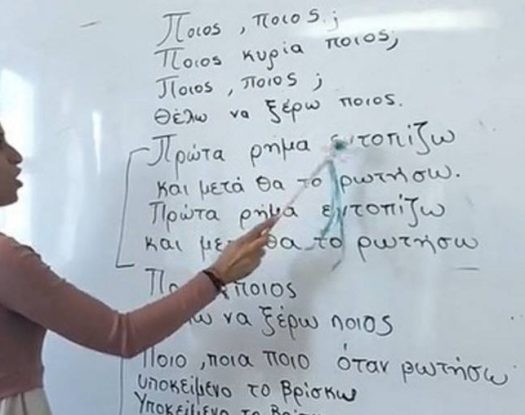 Ποιος , ποιος ;
Ποιος κυρία ποιος;
Ποιος , ποιος ;
Θέλω να ξέρω ποιος.
Πρώτα ρήμα εντοπίζω
και μετά θα το ρωτήσω.
Πρώτα ρήμα εντοπίζω
και με θα το ρωτήσω
ποιος
να ξέρω ποιος
Ποιο , ποια ποιο όταν ρωτήσω
υποκείμενο το βρίσκω
Υποκείμενο το